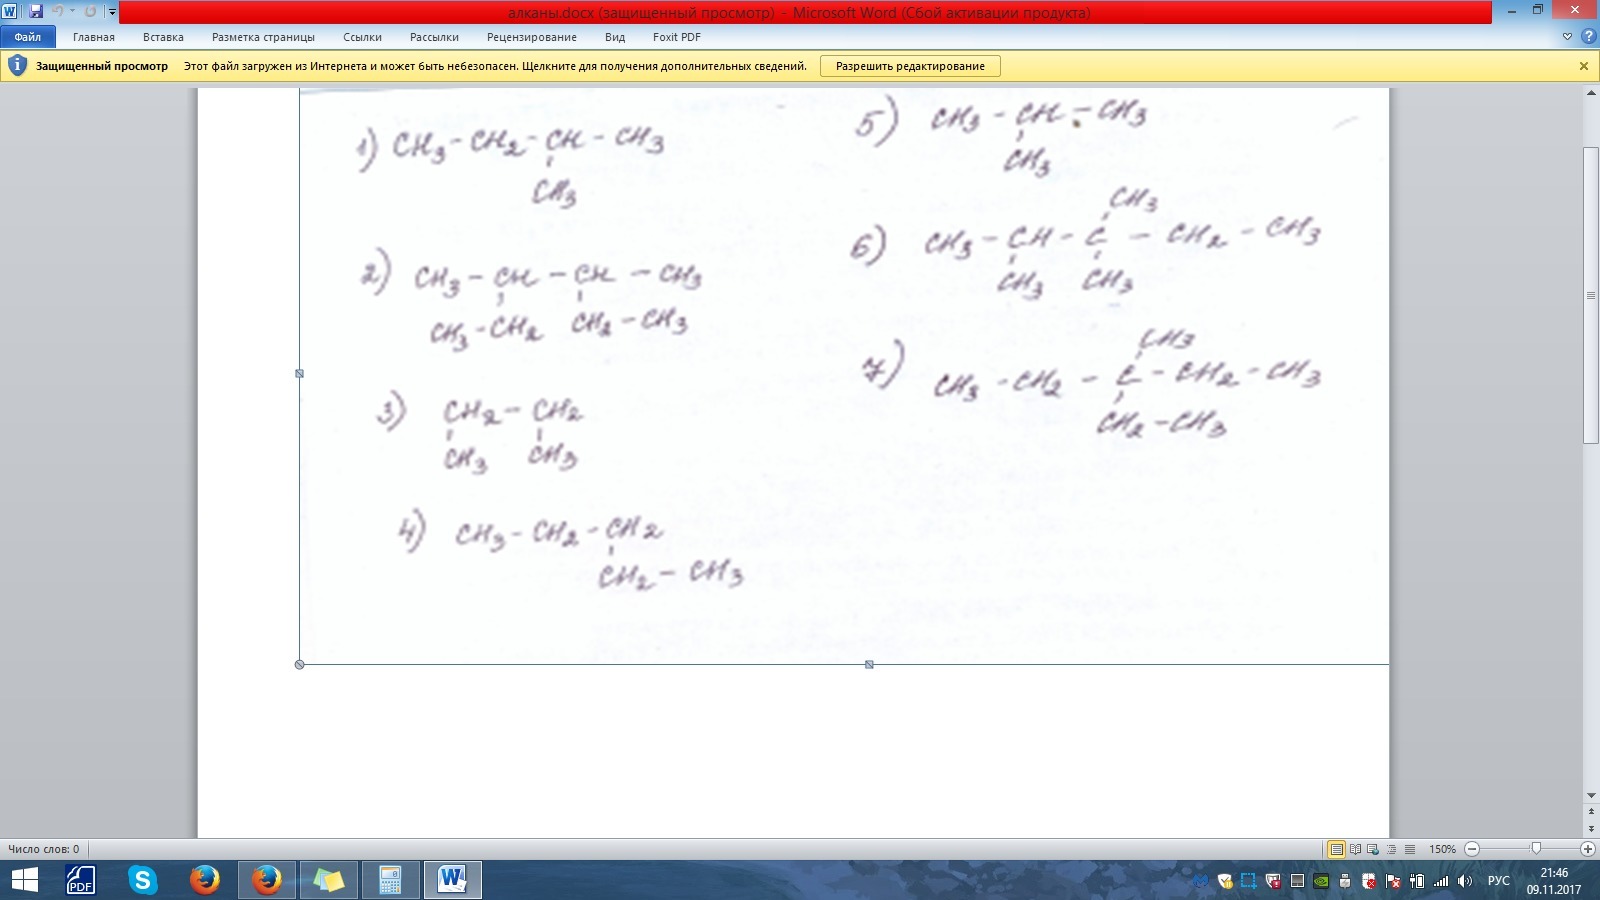 алканы.docx (защищенный просмотр) - Microsoft Word (Сбой активации продукта)
Файл Главная Вставка Разметка страницы Ссылки Рассылки Рецензирование Вид Foxit PDF
Защищенный просмотр Этот файл загружен из Интернета и может быть небезопасен. Щелкните для получения дополнительных сведений. Разрешить редактирование
1) CH3 - CH2 - CH - CH3
CH3
2) CH3 - CH - CH - CH3
CH3 - CH2 CH2 - CH3
3) CH2 - CH2
CH3 CH3
4) CH3 - CH2 - CH2
CH2 - CH3
5) CH3 - CH - CH3
CH3
CH3
6) CH3 - CH - C - CH2 - CH3
CH3 CH3
CH3
7) CH3 - CH2 - C - CH2 - CH3
CH2 - CH3
Число слов: 0 150%
PDF РУС 21:46
09.11.2017